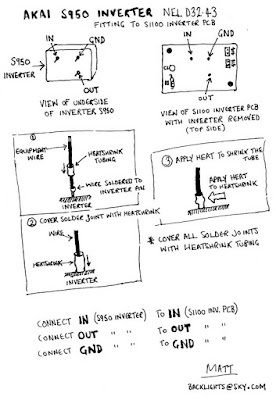 AKAI S950 INVERTER NEL D32-43
FITTING TO S1100 INVERTER PCB
IN
GND
S950
INVERTER
OUT
VIEW OF UNDERSIDE
OF INVERTER S950
IN
GND
OUT
VIEW OF S1100 INVERTER PCB
WITH INVERTER REMOVED
(TOP SIDE)
①
EQUIPMENT
WIRE
HEATSHRINK
TUBING
WIRE SOLDERED TO
INVERTER PAN
INVERTER
② COVER SOLDER JOINT WITH HEATSHRINK
WIRE
HEATSHRINK
INVERTER
③ APPLY HEAT TO SHRINK THE
TUBE
APPLY HEAT
TO HEATSHRINK
INVERTER
* COVER ALL SOLDER JOINTS
WITH HEATSHRINK TUBING
CONNECT IN (S950 INVERTER) TO IN (S1100 INV. PCB)
CONNECT OUT " " TO OUT " "
CONNECT GND " " TO GND " "
MATT
BACKLIGHTS@SKY.COM